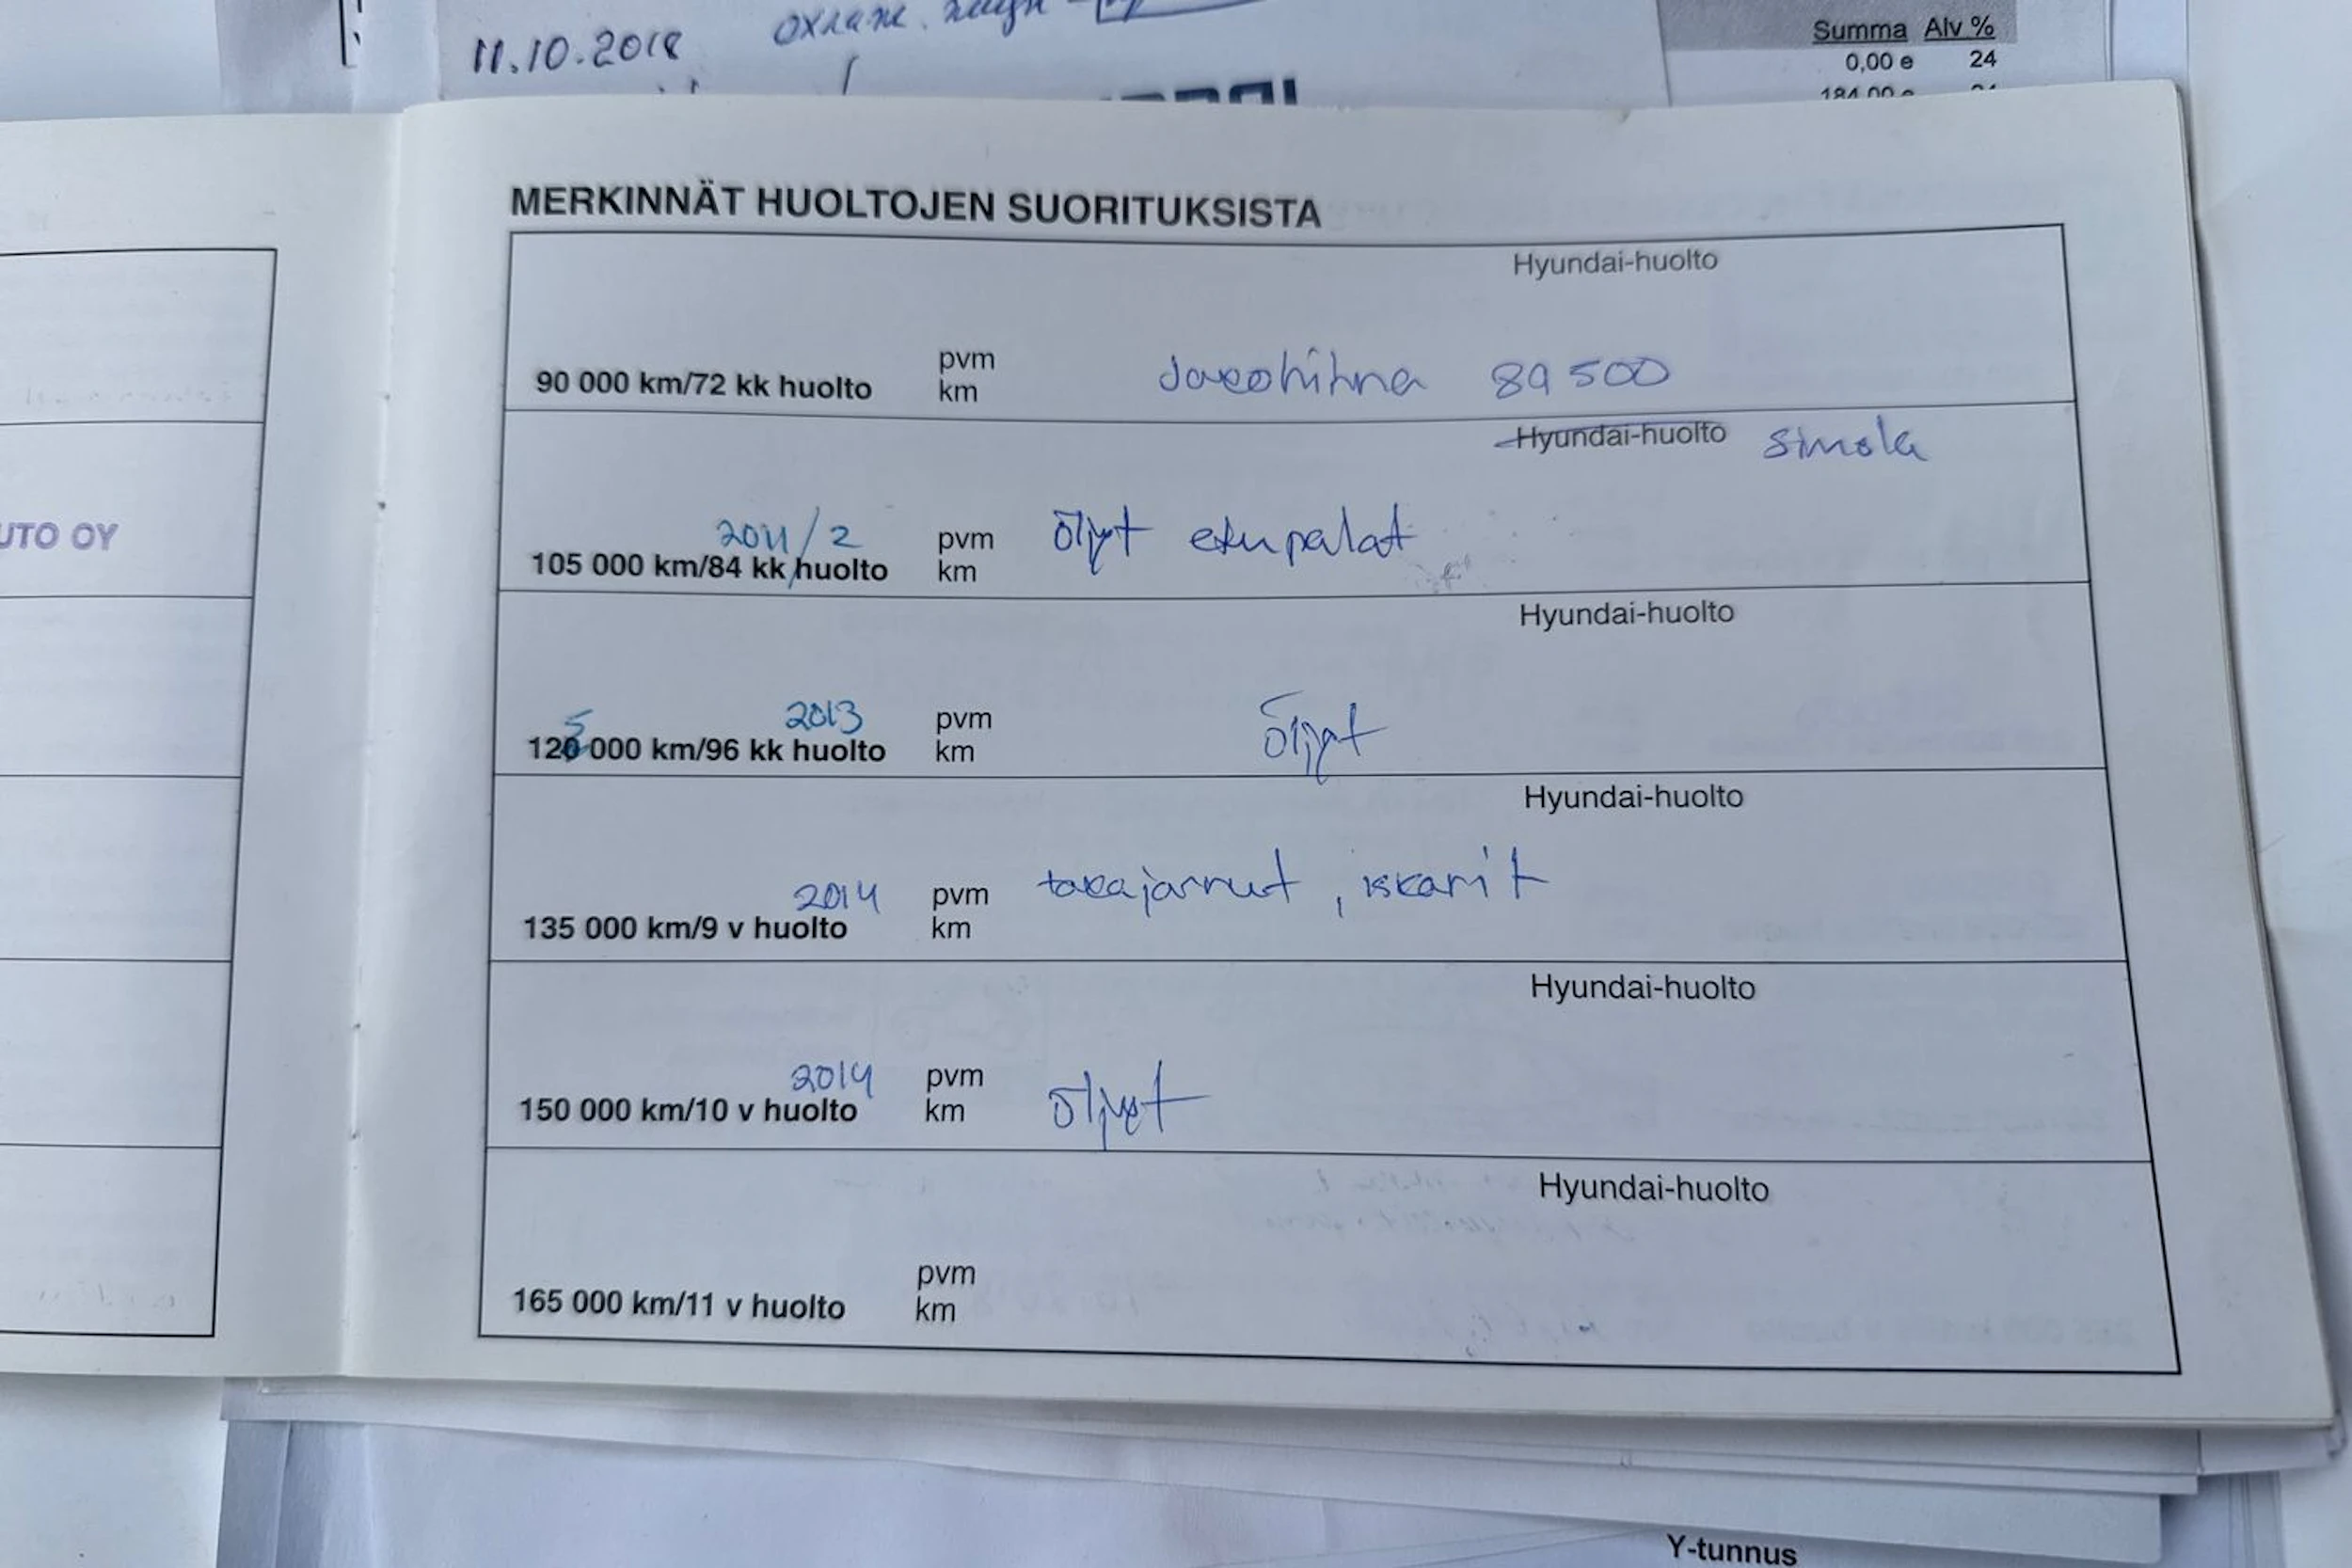 11.10.2018
Summa Alv %
0,00 e 24
184,00 e 24
MERKINNÄT HUOLTOJEN SUORITUKSISTA
Hyundai-huolto
90 000 km/72 kk huolto
pvm
km
Jakohihna 89 500
Hyundai-huolto Simola
2011/2
105 000 km/84 kk huolto
pvm
km
öljyt etupalat
UTO OY
Hyundai-huolto
2013
125 000 km/96 kk huolto
pvm
km
öljyt
Hyundai-huolto
2014
135 000 km/9 v huolto
pvm
km
takajarrut, iskarit
Hyundai-huolto
2014
150 000 km/10 v huolto
pvm
km
öljyt
Hyundai-huolto
165 000 km/11 v huolto
pvm
km
Y-tunnus